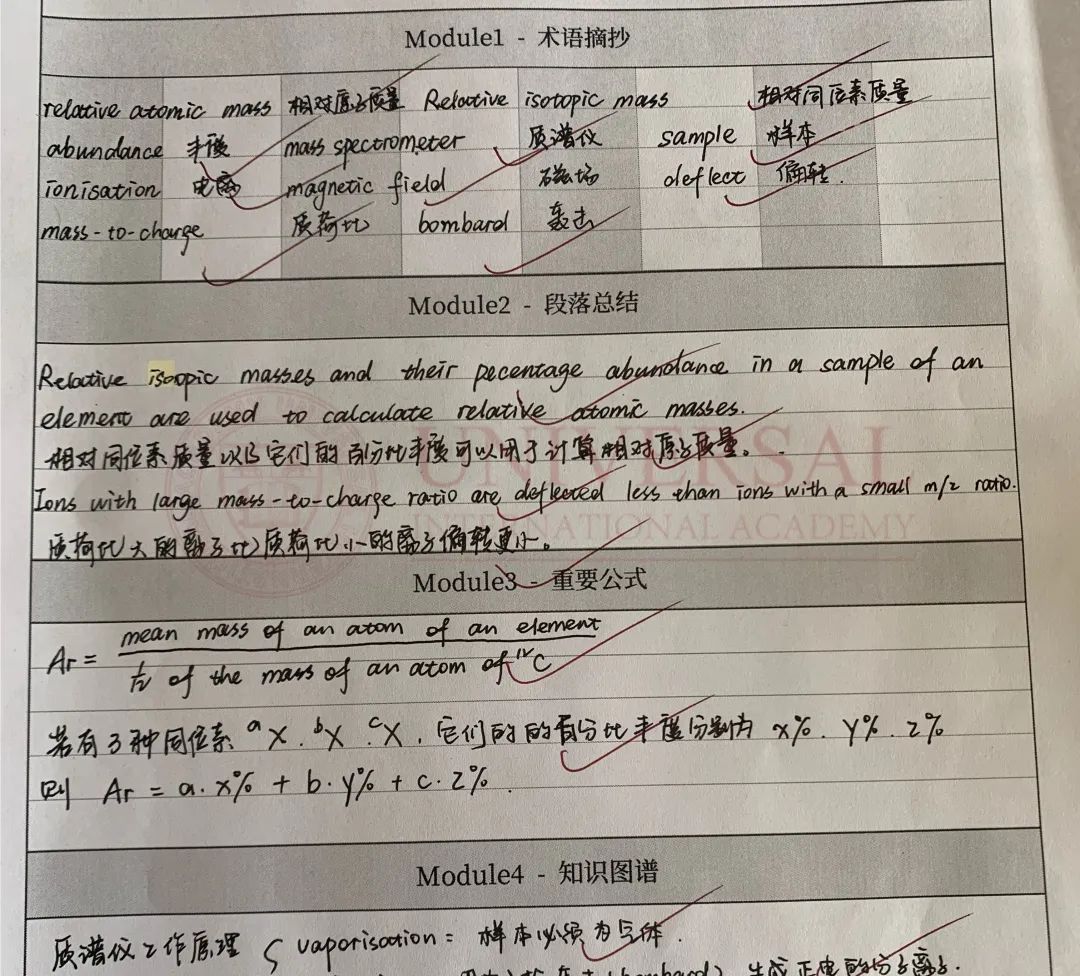 Module1 - 术语摘抄
relative atomic mass 相对原子质量 Relative isotopic mass 相对同位素质量
abundance 丰度 mass spectrometer 质谱仪 sample 样本
ionisation 电离 magnetic field 磁场 deflect 偏转.
mass-to-charge 质荷比 bombard 轰击
Module2 - 段落总结
Relative isoopic masses and their pecentage abundance in a sample of an
element are used to calculate relative atomic masses.
相对同位素质量以及它们的百分比丰度可以用于计算相对原子质量。
Ions with large mass-to-charge ratio are deflected less than ions with a small m/z ratio.
质荷比大的离子比质荷比小的离子偏转更小。
UNIVERSAL
INTERNATIONAL ACADEMY
Module3 - 重要公式
Ar = mean mass of an atom of an element
1/12 of the mass of an atom of ¹²C
若有3种同位素 ᵃX. ᵇX. ᶜX, 它们的的百分比丰度分别为 x%. Y%. Z%
则 Ar = a·x% + b·y% + c·Z%.
Module4 - 知识图谱
质谱仪工作原理 { vaporisation: 样本必须为气体.
(bombard) 生成正电的分子离子.